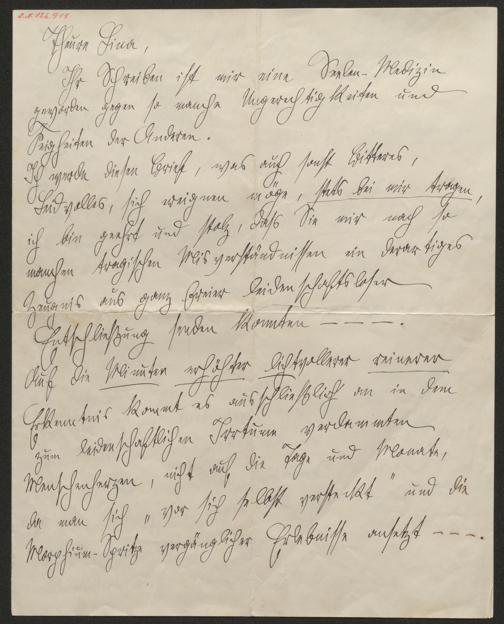 Z.N. 126.915
Theure Lina,
Ihr Schreiben ist mir eine Seelen-Medizin
geworden gegen so manche Ungerechtigkeiten und
Feigheiten der Anderen.
Ich werde diesen Brief, was auch sonst Bitteres,
Leidvolles, sich ereignen möge, stets bei mir tragen,
ich bin geehrt und stolz, dass Sie mir nach so
manchen tragischen Misverständnissen ein derartiges
Zeugnis aus ganz freier leidenschaftsloser
Entschließung senden konnten — — — —.
Auf die Minuten erhöhter lichtvollerer reinerer
Erkenntnis kommt es ausschließlich an in dem
zum leidenschaftlichen Irrtume verdammten
Menschenherzen, nicht auf die Tage und Monate,
da man sich „vor sich selbst versteckt" und die
Morphium-Spritze vergänglicher Erlebnisse ansetzt — — —.